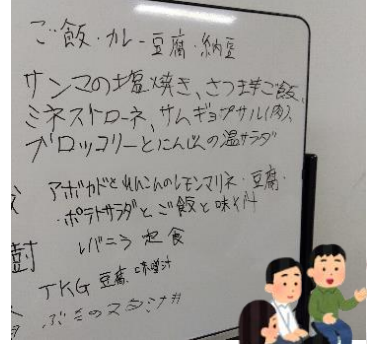 ご飯・カレー豆腐・納豆
サンマの塩焼き、さつま芋ご飯、
ミネストローネ、サムギョプサル(肉)、
ブロッコリーとにんじんの温サラダ
アボカドとれんこんのレモンマリネ・豆腐・
・ポテトサラダとご飯と味そ汁
レバニラ定食
TKG 豆腐 味噌汁
スタミナ丼